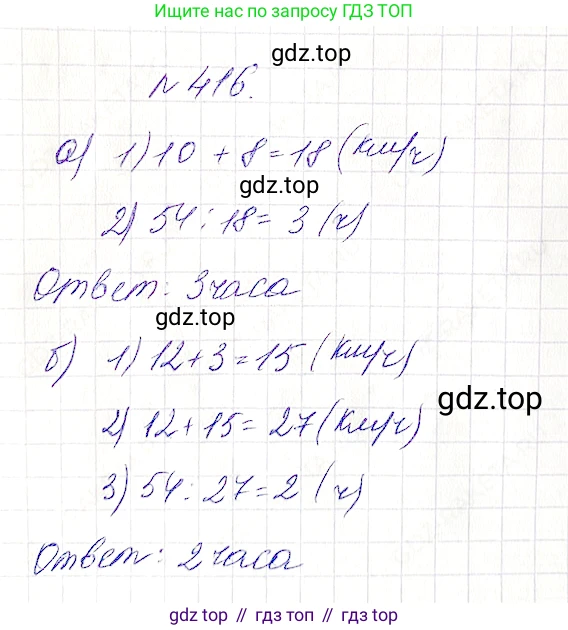 Ищите нас по запросу ГДЗ ТОП
gdz.top
№ 416.
а) 1) 10 + 8 = 18 (км/ч)
gdz.top
2) 54 : 18 = 3 (ч)
Ответ: 3 часа
gdz.top
б) 1) 12 + 3 = 15 (км/ч)
gdz.top
2) 12 + 15 = 27 (км/ч)
3) 54 : 27 = 2 (ч)
Ответ: 2 часа
gdz.top // гдз топ // gdz top